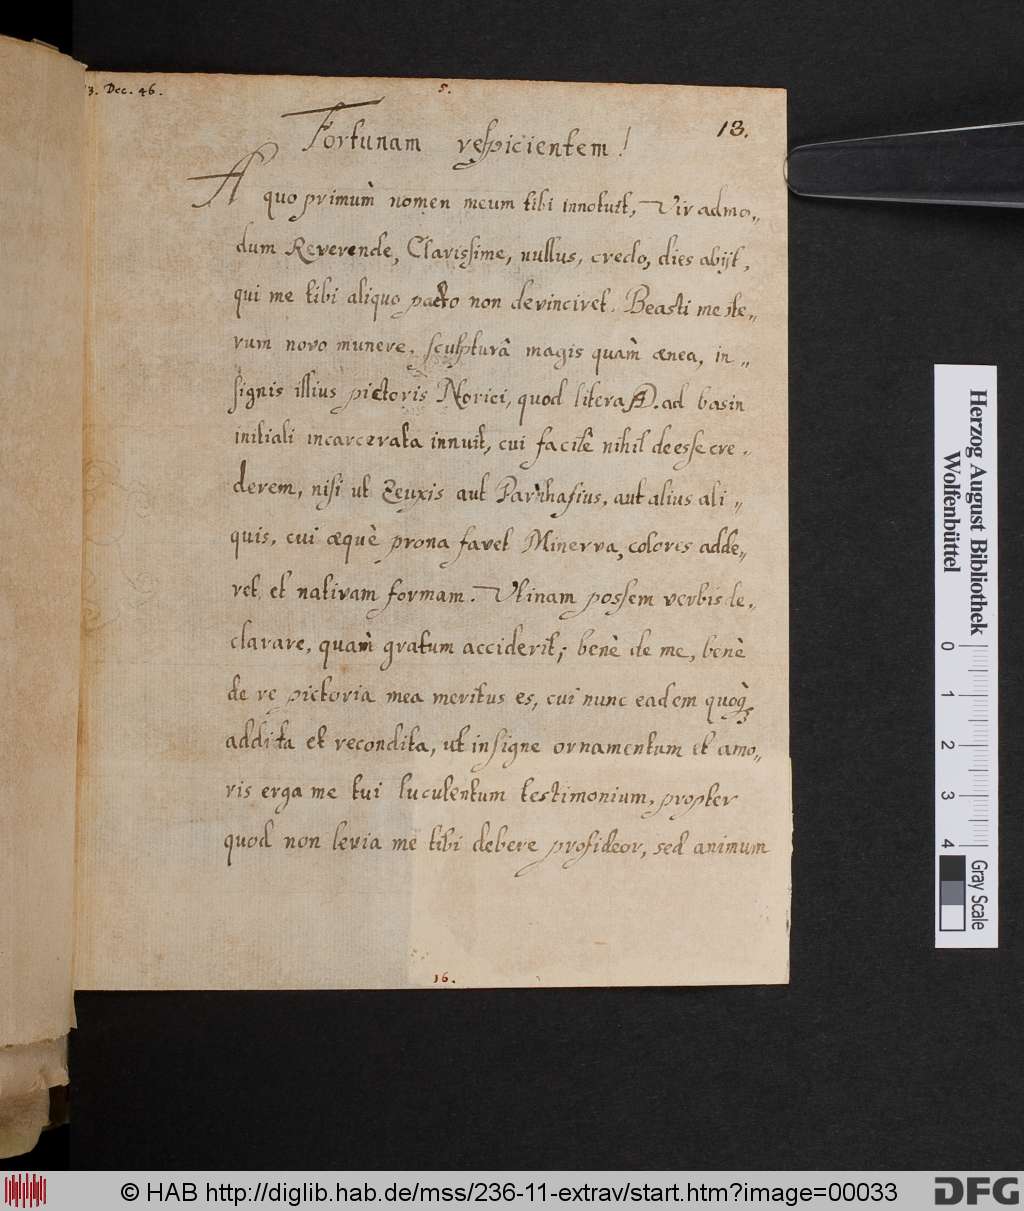 3. Dec. 46.
5.
13.
Fortunam respicientem!
A quo primùm nomen meum tibi innotuit, Vir admo„
dum Reverende, Clarissime, nullus, credo, dies abijt,
qui me tibi aliquo pacto non devinciret. Beasti me ite„
rum novo munere, sculpturâ magis quàm ænea, in„
signis illius pictoris Norici, quod litera AD. ad basin
initiali incarcerata innuit, cui facilè nihil deesse cre„
derem, nisi ut Zeuxis aut Parrhasius, aut alius ali„
quis, cui æquè prona favet Minerva, colores adde„
ret, et nativam formam. Utinam possem verbis de„
clarare, quàm gratum acciderit; benè de me, benè
de re pictoria mea meritus es, cui nunc eadem quoq̀ꝫ
addita et recondita, ut insigne ornamentum et amo„
ris erga me tui luculentum testimonium, propter
quod non levia me tibi debere profideor, sed animum
16.
Herzog August Bibliothek
Wolfenbüttel
0 1 2 3 4
Gray Scale
© HAB http://diglib.hab.de/mss/236-11-extrav/start.htm?image=00033
DFG